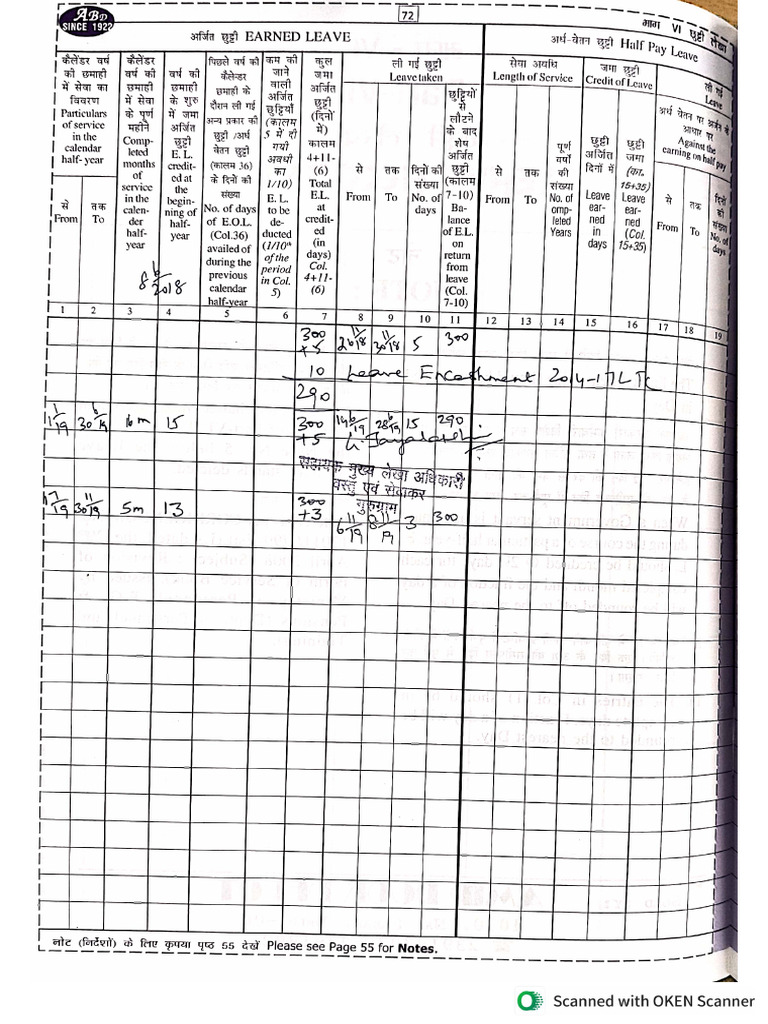 ABD
SINCE 1922
72
भाग VI छुट्टी लेखा
अर्जित छुट्टी EARNED LEAVE
अर्ध-वेतन छुट्टी Half Pay Leave
कैलेंडर वर्ष की छमाही में सेवा का विवरण Particulars of service in the calendar half- year
से From
तक To
कैलेंडर वर्ष की छमाही में सेवा के पूर्ण महीने Comp-leted months of service in the calen-der half-year
वर्ष की छमाही के शुरु में जमा अर्जित छुट्टी E. L. credit-ed at the begin-ning of half-year
पिछले वर्ष की कैलेन्डर छमाही के दौरान ली गई अन्य प्रकार की छुट्टी /अर्ध वेतन छुट्टी (कालम 36) के दिनों की संख्या No. of days of E.O.L. (Col.36) availed of during the previous calendar half-year
कम की जाने वाली अर्जित छुट्टियाँ (कालम 5 में दी गयी अवधी का 1/10) E. L. to be de-ducted (1/10th of the period in Col. 5)
कुल जमा अर्जित छुट्टी (दिनों में) कालम 4+11-(6) Total E.L. at credit-ed (in days) Col. 4+11-(6)
ली गई छुट्टी Leave taken
से From
तक To
दिनों की संख्या No. of days
छुट्टियों से लौटने के बाद शेष अर्जित छुट्टी (कालम 7-10) Ba-lance of E.L. on return from leave (Col. 7-10)
सेवा अवधि Length of Service
से From
तक To
पूर्ण वर्षों की संख्या No. of omp-leted Years
जमा छुट्टी Credit of Leave
छुट्टी अर्जित दिनों में Leave ear-ned in days
छुट्टी जमा (का. 15+35) Leave ear-ned (Col. 15+35)
ली गयी Leave
अर्ध वेतन पर अर्जन के आधार पर Against the earning on half pay
से From
तक To
दिनों की संख्या No. of days
8 6/2018
1 2 3 4 5 6 7 8 9 10 11 12 13 14 15 16 17 18 19
300 +5 26 11/18 30 11/18 5 300
10 Leave Encashment 2014-17 LTC
290
1 1/19 30 6/19 6m 15 300 +5 14 6/19 28 6/19 15 290
सहायक मुख्य लेखा अधिकारी
वस्तु एवं सेवाकर
गुरुग्राम
1 7/19 30 11/19 5m 13 300 +3 6 11/19 8 11/19 3 300
नोट (निर्देशों) के लिए कृपया पृष्ठ 55 देखें Please see Page 55 for Notes.
Scanned with OKEN Scanner